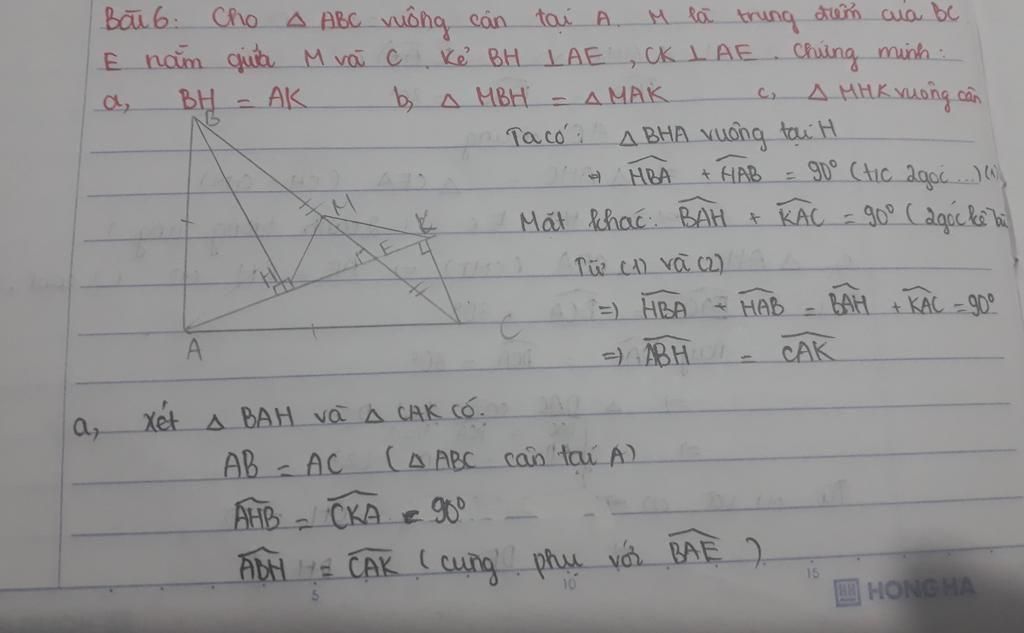 Bài 6: Cho △ ABC vuông cân tại A. M là trung điểm của BC
E nằm giữa M và C. Kẻ BH ⊥ AE, CK ⊥ AE. Chứng minh:
a, BH = AK b, △ MBH = △ MAK c, △ MHK vuông cân
B
M
K
E
H
A
C
Ta có: △ BHA vuông tại H
⇒ \widehat{HBA} + \widehat{HAB} = 90° (t/c 2 góc ...) (1)
Mặt khác: \widehat{BAH} + \widehat{KAC} = 90° (2 góc kề bù
Từ (1) và (2)
⇒ \widehat{HBA} + \widehat{HAB} = \widehat{BAH} + \widehat{KAC} = 90°
⇒ \widehat{ABH} = \widehat{CAK}
a, Xét △ BAH và △ CAK có.
AB = AC (△ ABC cân tại A)
\widehat{AHB} = \widehat{CKA} = 90°
\widehat{ABH} = \widehat{CAK} (cùng phụ với \widehat{BAE})
5 10 15
HONG HA